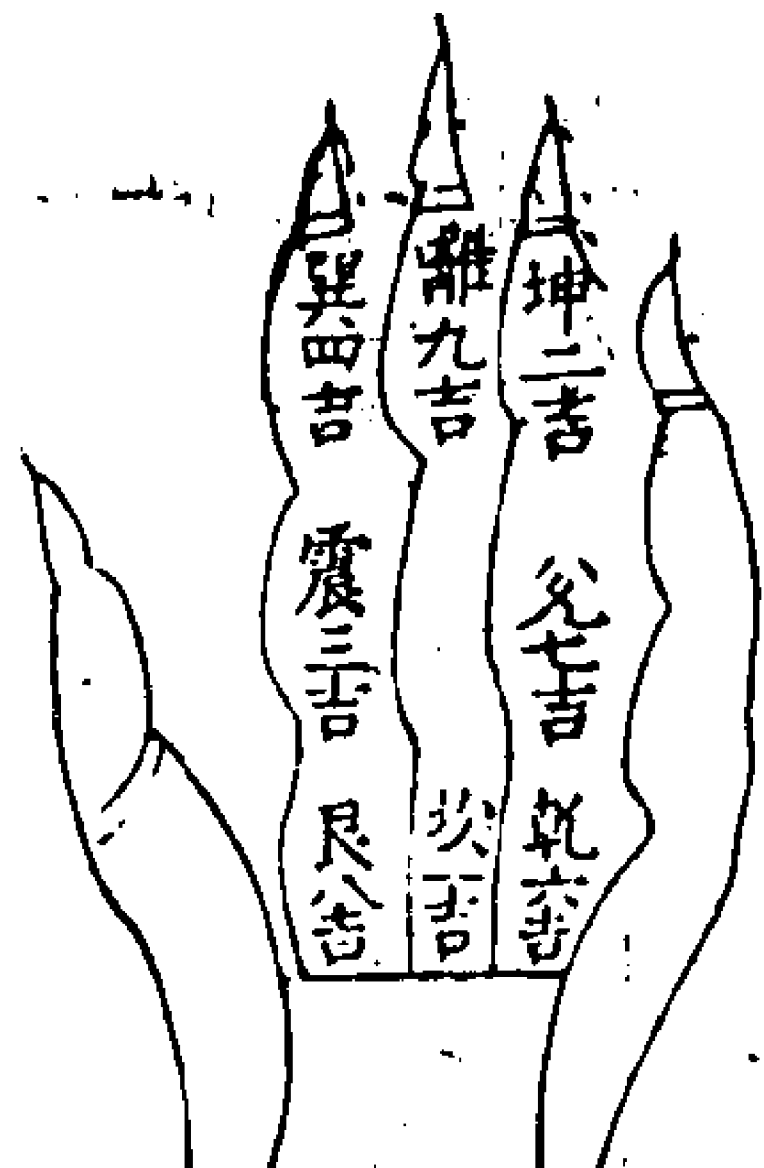 坤二吉
兌七吉
乾六吉
離九吉
坎一吉
巽四吉
震三吉
艮八吉